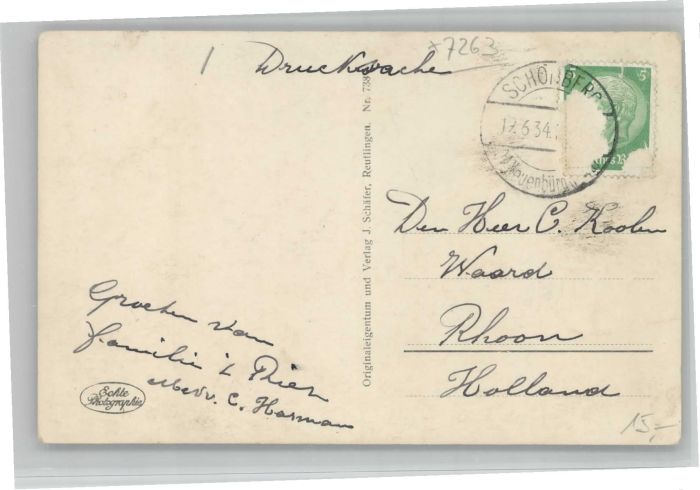 *7263
Drucksache
SCHÖMBERG
19.6.34
Neuenbürg
5
Den Heer C. Koolen
Waard
Rhoon
Holland
Groeten van
familie
C. Harman
Originaleigentum und Verlag J. Schäfer, Reutlingen. Nr.
Echte
Photographie
15,-